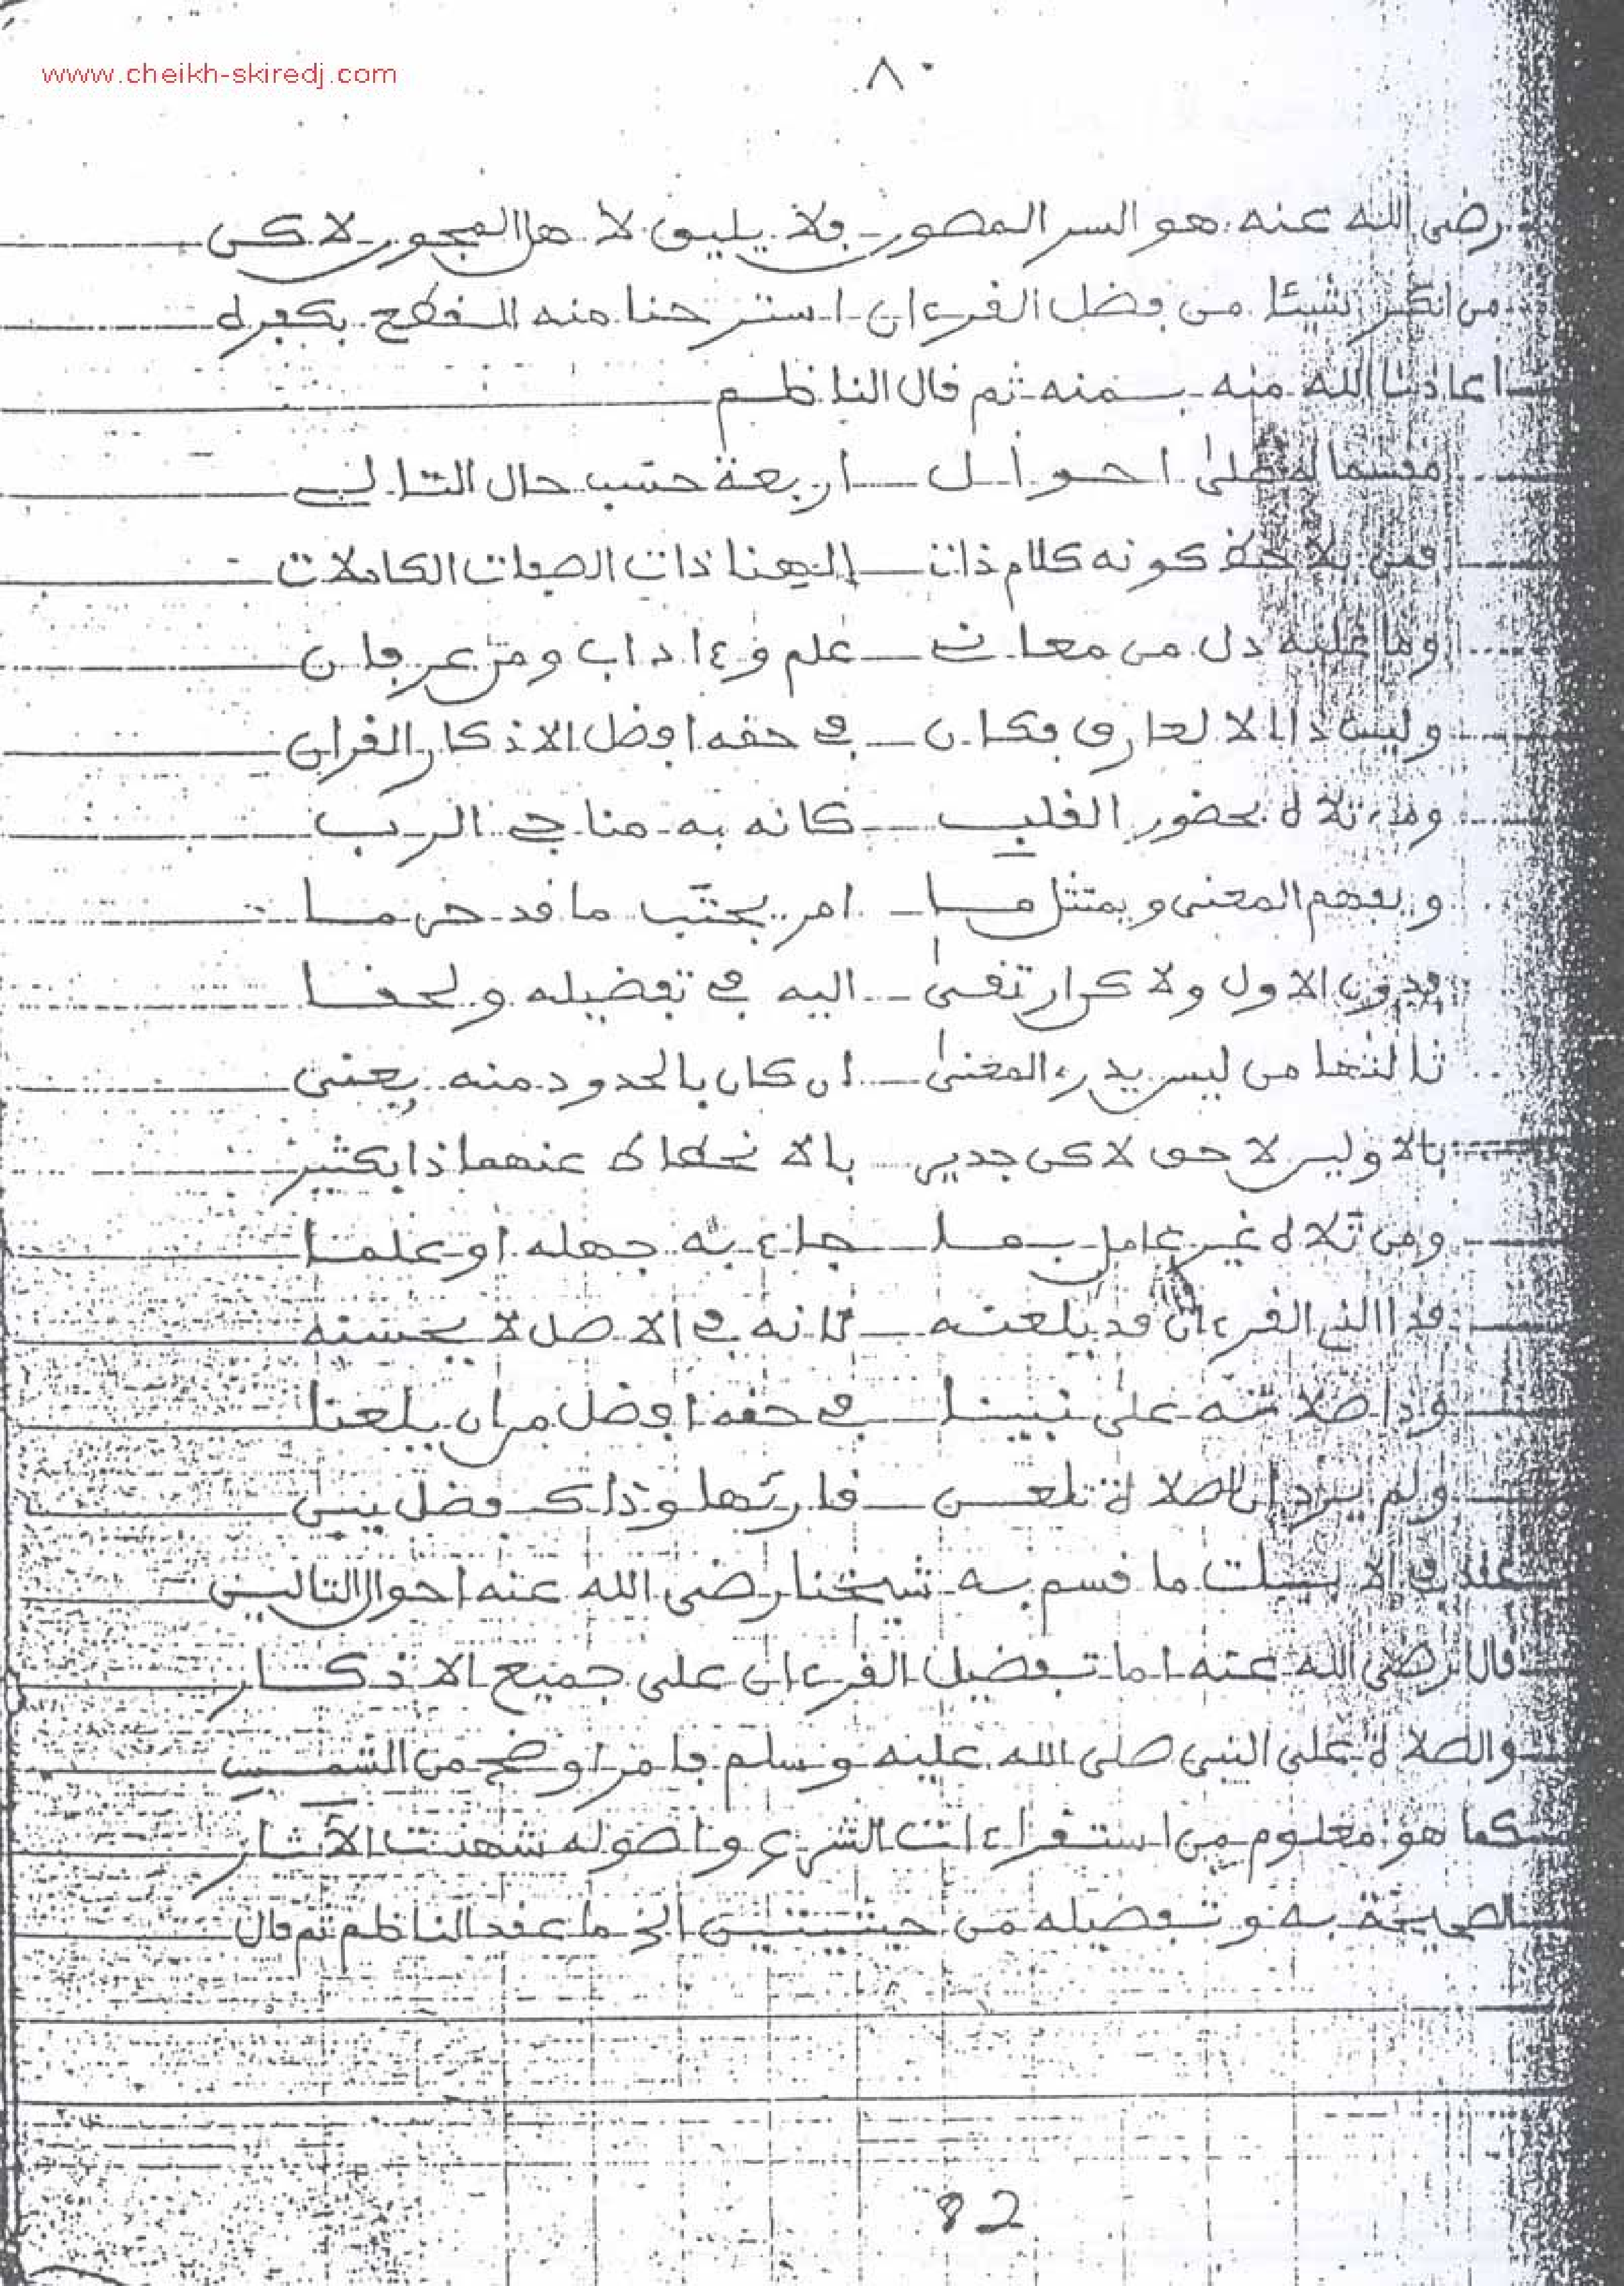 www.cheikh-skiredj.com
٨٠
رضى الله عنه هو السر المصور فلا يليق لاهل الفجور لاكن
من انكر شيئا من فضل القرءان استرحنا منه للقطع بكفره
اعاذنا الله منه بمنه ثم قال الناظم
مقسما له على احوال اربعة حسب حال التالى
فمن يلاحظ كونه كلام ذات الهنا ذات الصفات الكاملات
وما عليه دل من معان علم وءاداب ومن عرفان
وليس ذا الا لعارف فكان فى حقه افضل الاذكار القران
ومن تلاه بحضور القلب كانه به مناجى الرب
ويفهم المعنى ويمتثل ما امر يجتنب ما قد حرما
فدون الاول ولاكن ارتقى اليه فى تفضيله ولحقا
ثالثها من ليس يدرى المعنى ان كان بالحدود منه يعنى
بالاولين لاحق لاكن جدير بالانحطاط عنهما ذا بكثير
ومن تلاه غير عامل بما جاء به جهله او علما
فذا الذى القرءان قد يلعنه لانه فى الاصل لا يحسنه
وذا صلاته على نبينا فى حقه افضل من ان يلعنا
ولم يرد ان الصلاة تلعن قارئها وذاك فضل بين
عقد فى الابيات ما قسم به شيخنا رضى الله عنه احوال التالين
قال رضى الله عنه اما تفضيل القرءان على جميع الاذكار
والصلاة على النبى صلى الله عليه وسلم فامر اوضح من الشمس
كما هو معلوم من استقراءات الشرع واصوله شهدت الأثار
الصحيحة به وتفضيله من حيثيتين الخ ما عقد الناظم ثم قال
82